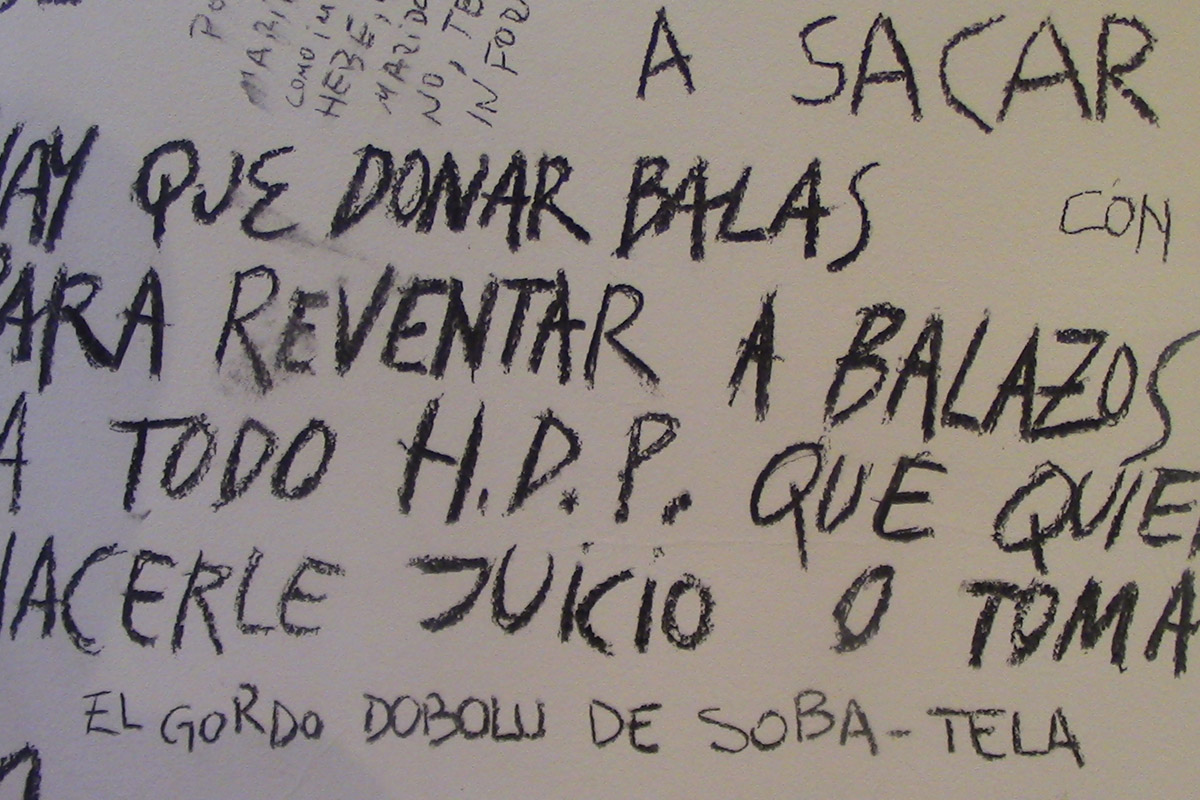 A SACAR
HAY QUE DONAR BALAS
CON
PARA REVENTAR A BALAZOS
A TODO H.D.P. QUE QUIE
HACERLE JUICIO O TOMA
EL GORDO DOBOLU DE SOBA-TELA
COMO IM
HEBE,
MARIDO
NO, TE
IN FOR